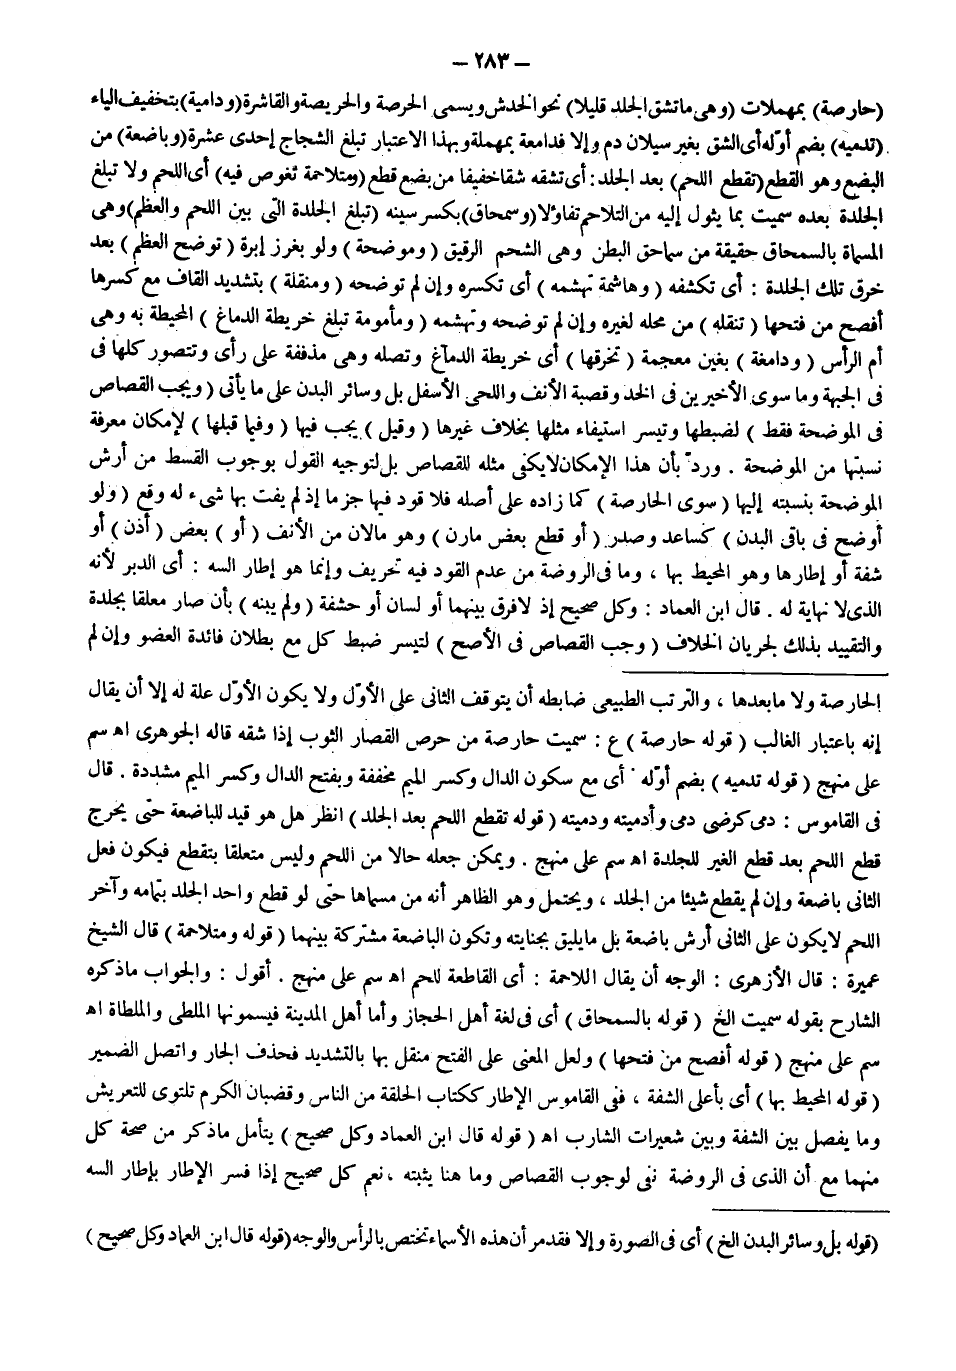 – ٢٨٣ –
(حارصة) بمهملات (وهى ماتشق الجلد قليلا) نحو الخدش ويسمى الحرصة والحريصة والقاشرة (ودامية) بتخفيف الياء
(تدميه) بضم أوّله أى الشق بغير سيلان دم وإلا فدامعة بمهملة وبهذا الاعتبار تبلغ الشجاج إحدى عشرة (وباضعة) من
البضع وهو القطع (تقطع اللحم) بعد الجلد : أى تشقه شقا خفيفا من بضع قطع (ومتلاحمة تغوص فيه) أى اللحم ولا تبلغ
الجلدة بعده سميت بما يئول إليه من التلاحم تفاؤلا (وسمحاق) بكسر سينه (تبلغ الجلدة التى بين اللحم والعظم) وهى
المسماة بالسمحاق حقيقة من سماحق البطن وهى الشحم الرقيق ( وموضحة ) ولو بغرز إبرة ( توضح العظم ) بعد
خرق تلك الجلدة : أى تكشفه ( وهاشمة تهشمه ) أى تكسره وإن لم توضحه ( ومنقلة ) بتشديد القاف مع كسرها
أفصح من فتحها ( تنقله ) من محله لغيره وإن لم توضحه وتهشمه ( ومأمومة تبلغ خريطة الدماغ ) المحيطة به وهى
أم الرأس ( ودامغة ) بغين معجمة ( تخرقها ) أى خريطة الدماغ وتصله وهى مذففة على رأى وتتصور كلها فى
فى الجبهة وما سوى الأخيرين فى الخد وقصبة الأنف واللحى الأسفل بل وسائر البدن على ما يأتى ( ويجب القصاص
فى الموضحة فقط ) لضبطها وتيسر استيفاء مثلها بخلاف غيرها ( وقيل ) يجب فيها ( وفيما قبلها ) لإمكان معرفة
نسبتها من الموضحة . وردّ بأن هذا الإمكان لايكفى مثله للقصاص بل لتوجيه القول بوجوب القسط من أرش
الموضحة بنسبته إليها ( سوى الحارصة ) كما زاده على أصله فلا قود فيها جزما إذ لم يفت بها شىء له وقع ( ولو
أوضح فى باقى البدن ) كساعد وصدر ( أو قطع بعض مارن ) وهو مالان من الأنف ( أو ) بعض ( أذن ) أو
شفة أو إطارها وهو المحيط بها ، وما فى الروضة من عدم القود فيه تحريف وإنما هو إطار السه : أى الدبر لأنه
الذى لا نهاية له . قال ابن العماد : وكل صحيح إذ لافرق بينهما أو لسان أو حشفة ( ولم يبنه ) بأن صار معلقا بجلدة
والتقييد بذلك لجريان الخلاف ( وجب القصاص فى الأصح ) لتيسر ضبط كل مع بطلان فائدة العضو وإن لم
الحارصة ولا مابعدها ، والترتب الطبيعى ضابطه أن يتوقف الثانى على الأوّل ولا يكون الأوّل علة له إلا أن يقال
إنه باعتبار الغالب ( قوله حارصة ) ع : سميت حارصة من حرص القصار الثوب إذا شقه قاله الجوهرى اه سم
على منهج ( قوله تدميه ) بضم أوّله أى مع سكون الدال وكسر الميم مخففة وبفتح الدال وكسر الميم مشددة . قال
فى القاموس : دمى كرضى دمى وأدميته ودميته ( قوله تقطع اللحم بعد الجلد ) انظر هل هو قيد للباضعة حتى يخرج
قطع اللحم بعد قطع الغير للجلدة اه سم على منهج . ويمكن جعله حالا من اللحم وليس متعلقا بتقطع فيكون فعل
الثانى باضعة وإن لم يقطع شيئا من الجلد ، ويحتمل وهو الظاهر أنه من مسماها حتى لو قطع واحد الجلد بتمامه وآخر
اللحم لايكون على الثانى أرش باضعة بل مايليق بجنايته وتكون الباضعة مشتركة بينهما ( قوله ومتلاحمة ) قال الشيخ
عميرة : قال الأزهرى : الوجه أن يقال اللاحمة : أى القاطعة للحم اه سم على منهج . أقول : والجواب ماذكره
الشارح بقوله سميت الخ ( قوله بالسمحاق ) أى فى لغة أهل الحجاز وأما أهل المدينة فيسمونها الملطى والملطاة اه
سم على منهج ( قوله أفصح من فتحها ) ولعل المعنى على الفتح منقل بها بالتشديد فحذف الجار واتصل الضمير
( قوله المحيط بها ) أى بأعلى الشفة ، ففى القاموس الإطار ككتاب الحلقة من الناس وقضبان الكرم تلتوى للتعريش
وما يفصل بين الشفة وبين شعيرات الشارب اه ( قوله قال ابن العماد وكل صحيح ) يتأمل ماذكر من صحة كل
منهما مع أن الذى فى الروضة نفى لوجوب القصاص وما هنا يثبته ، نعم كل صحيح إذا فسر الإطار بإطار السه
(قوله بل وسائر البدن الخ ) أى فى الصورة وإلا فقد مر أن هذه الأسماء تختص بالرأس والوجه (قوله قال ابن العماد وكل صحيح )